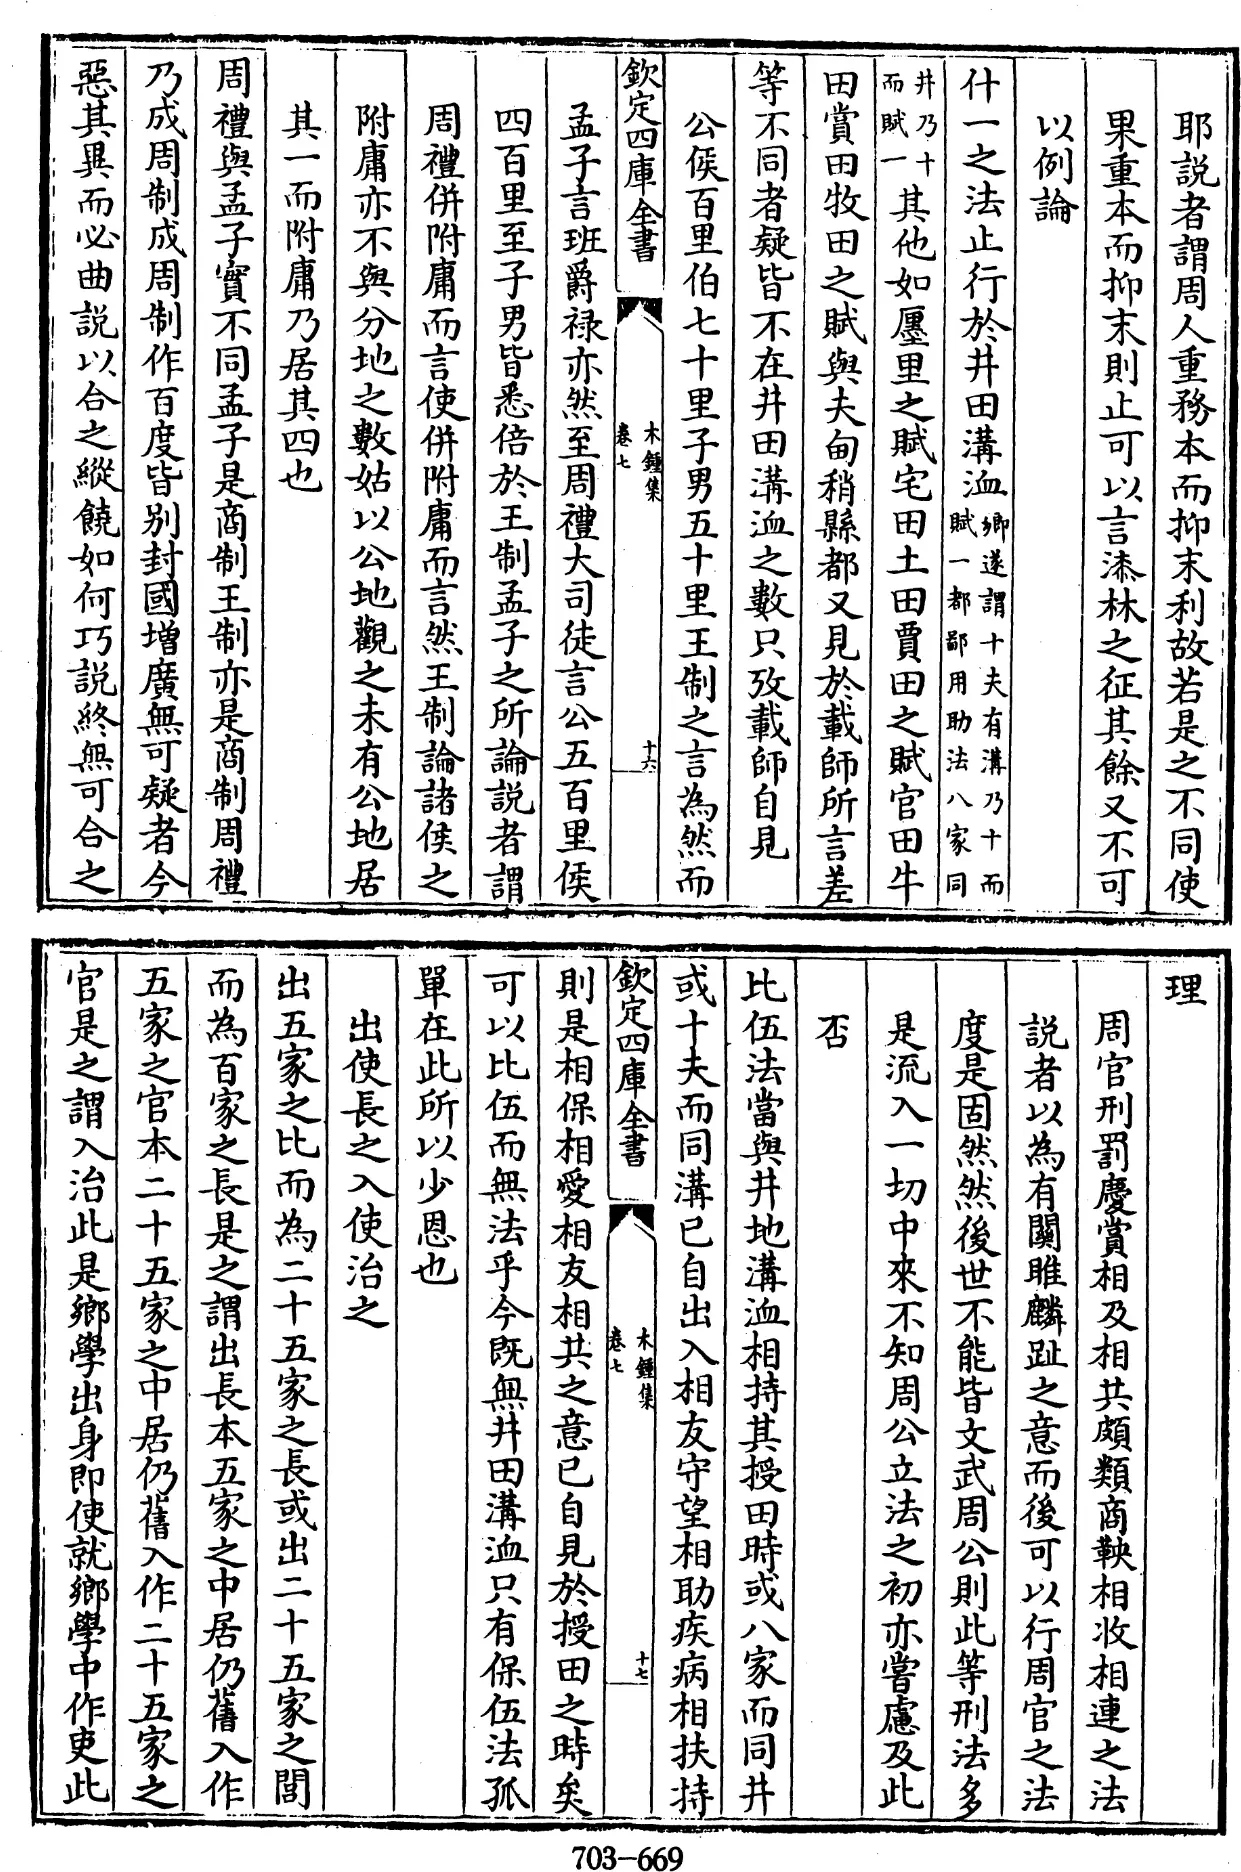 耶説者謂周人重務本而抑末利故若是之不同使
果重本而抑末則止可以言漆林之征其餘又不可
以例論
什一之法止行於井田溝洫鄉遂謂十夫有溝乃十而賦一都鄙用助法八家同
井乃十而賦一其他如廛里之賦宅田土田賈田之賦官田牛
田賞田牧田之賦與夫甸稍縣都又見於載師所言差
等不同者疑皆不在井田溝洫之數只攷載師自見
公侯百里伯七十里子男五十里王制之言為然而
欽定四庫全書
木鍾集
卷七
十六
孟子言班爵禄亦然至周禮大司徒言公五百里侯
四百里至子男皆悉倍於王制孟子之所論説者謂
周禮併附庸而言使併附庸而言然王制論諸侯之
附庸亦不與分地之數姑以公地觀之未有公地居
其一而附庸乃居其四也
周禮與孟子實不同孟子是商制王制亦是商制周禮
乃成周制成周制作百度皆别封國增廣無可疑者今
惡其異而必曲説以合之縱饒如何巧説終無可合之
理
周官刑罰慶賞相及相共頗類商鞅相收相連之法
説者以為有關雎麟趾之意而後可以行周官之法
度是固然然後世不能皆文武周公則此等刑法多
是流入一切中來不知周公立法之初亦嘗慮及此
否
比伍法當與井地溝洫相持其授田時或八家而同井
或十夫而同溝已自出入相友守望相助疾病相扶持
欽定四庫全書
木鍾集
卷七
十七
則是相保相愛相友相共之意已自見於授田之時矣
可以比伍而無法乎今既無井田溝洫只有保伍法孤
單在此所以少恩也
出使長之入使治之
出五家之比而為二十五家之長或出二十五家之閭
而為百家之長是之謂出長本五家之中居仍舊入作
五家之官本二十五家之中居仍舊入作二十五家之
官是之謂入治此是鄉學出身即使就鄉學中作吏此
703-669